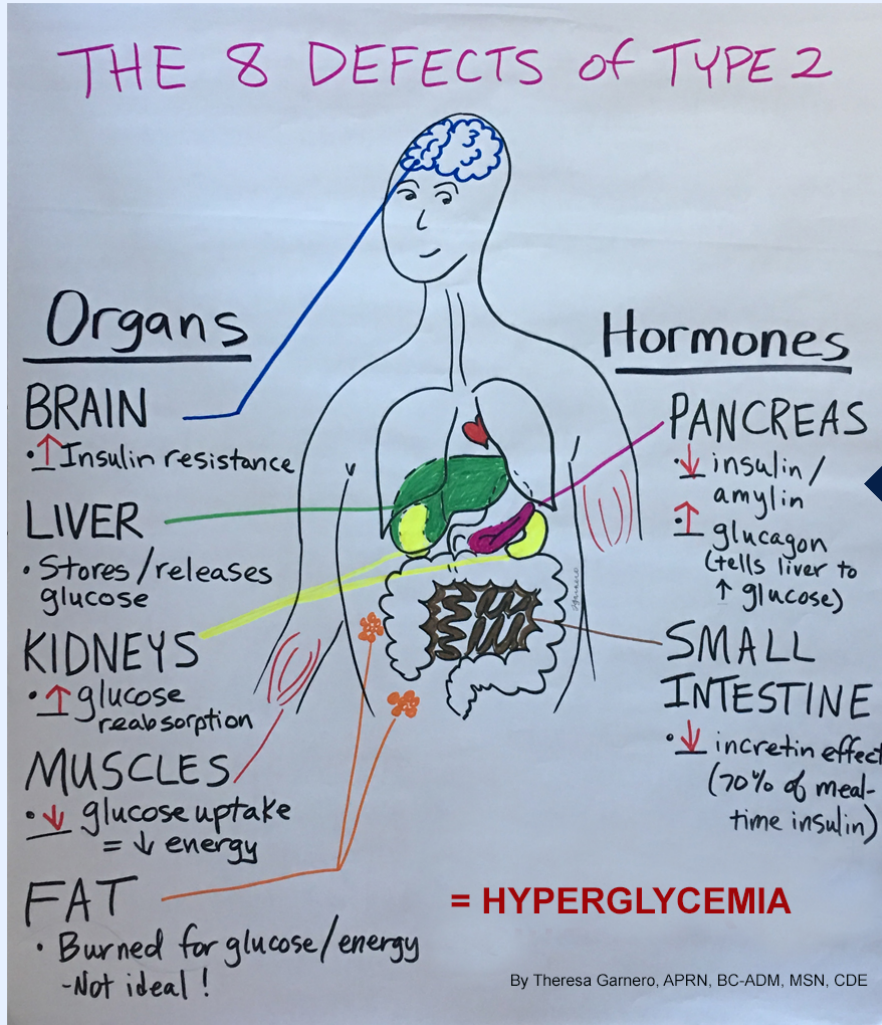 THE 8 DEFECTS of TYPE 2
Organs
BRAIN
• ↑ Insulin resistance
LIVER
• Stores/releases
glucose
KIDNEYS
• ↑ glucose
reabsorption
MUSCLES
• ↓ glucose uptake
= ↓ energy
FAT
• Burned for glucose/energy
-Not ideal!
Hormones
PANCREAS
• ↓ insulin/
amylin
• ↑ glucagon
(tells liver to
↑ glucose)
SMALL
INTESTINE
• ↓ incretin effect
(70% of meal-
time insulin)
= HYPERGLYCEMIA
By Theresa Garnero, APRN, BC-ADM, MSN, CDE